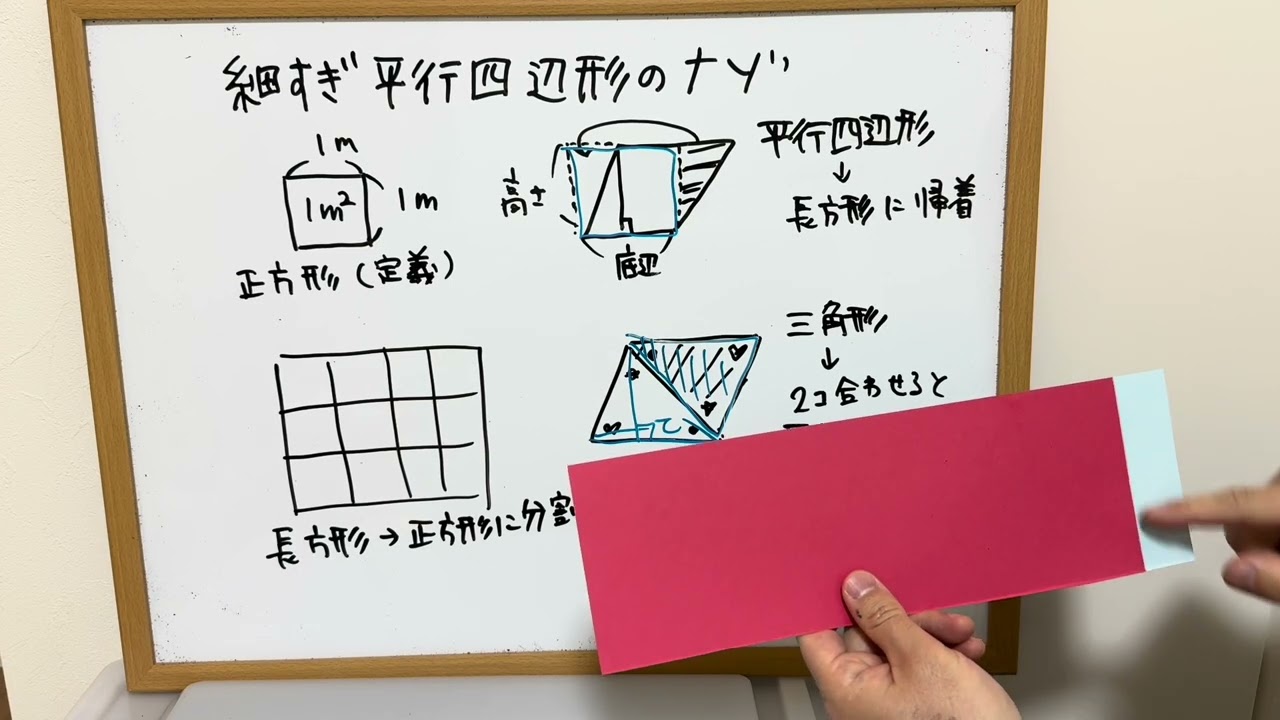 細すぎ平行四辺形のナゾ
1m
1m²
1m
正方形(定義)
高さ
底辺
平行四辺形
↓
長方形に帰着
長方形→正方形に分割
三角形
↓
2コ合わせると